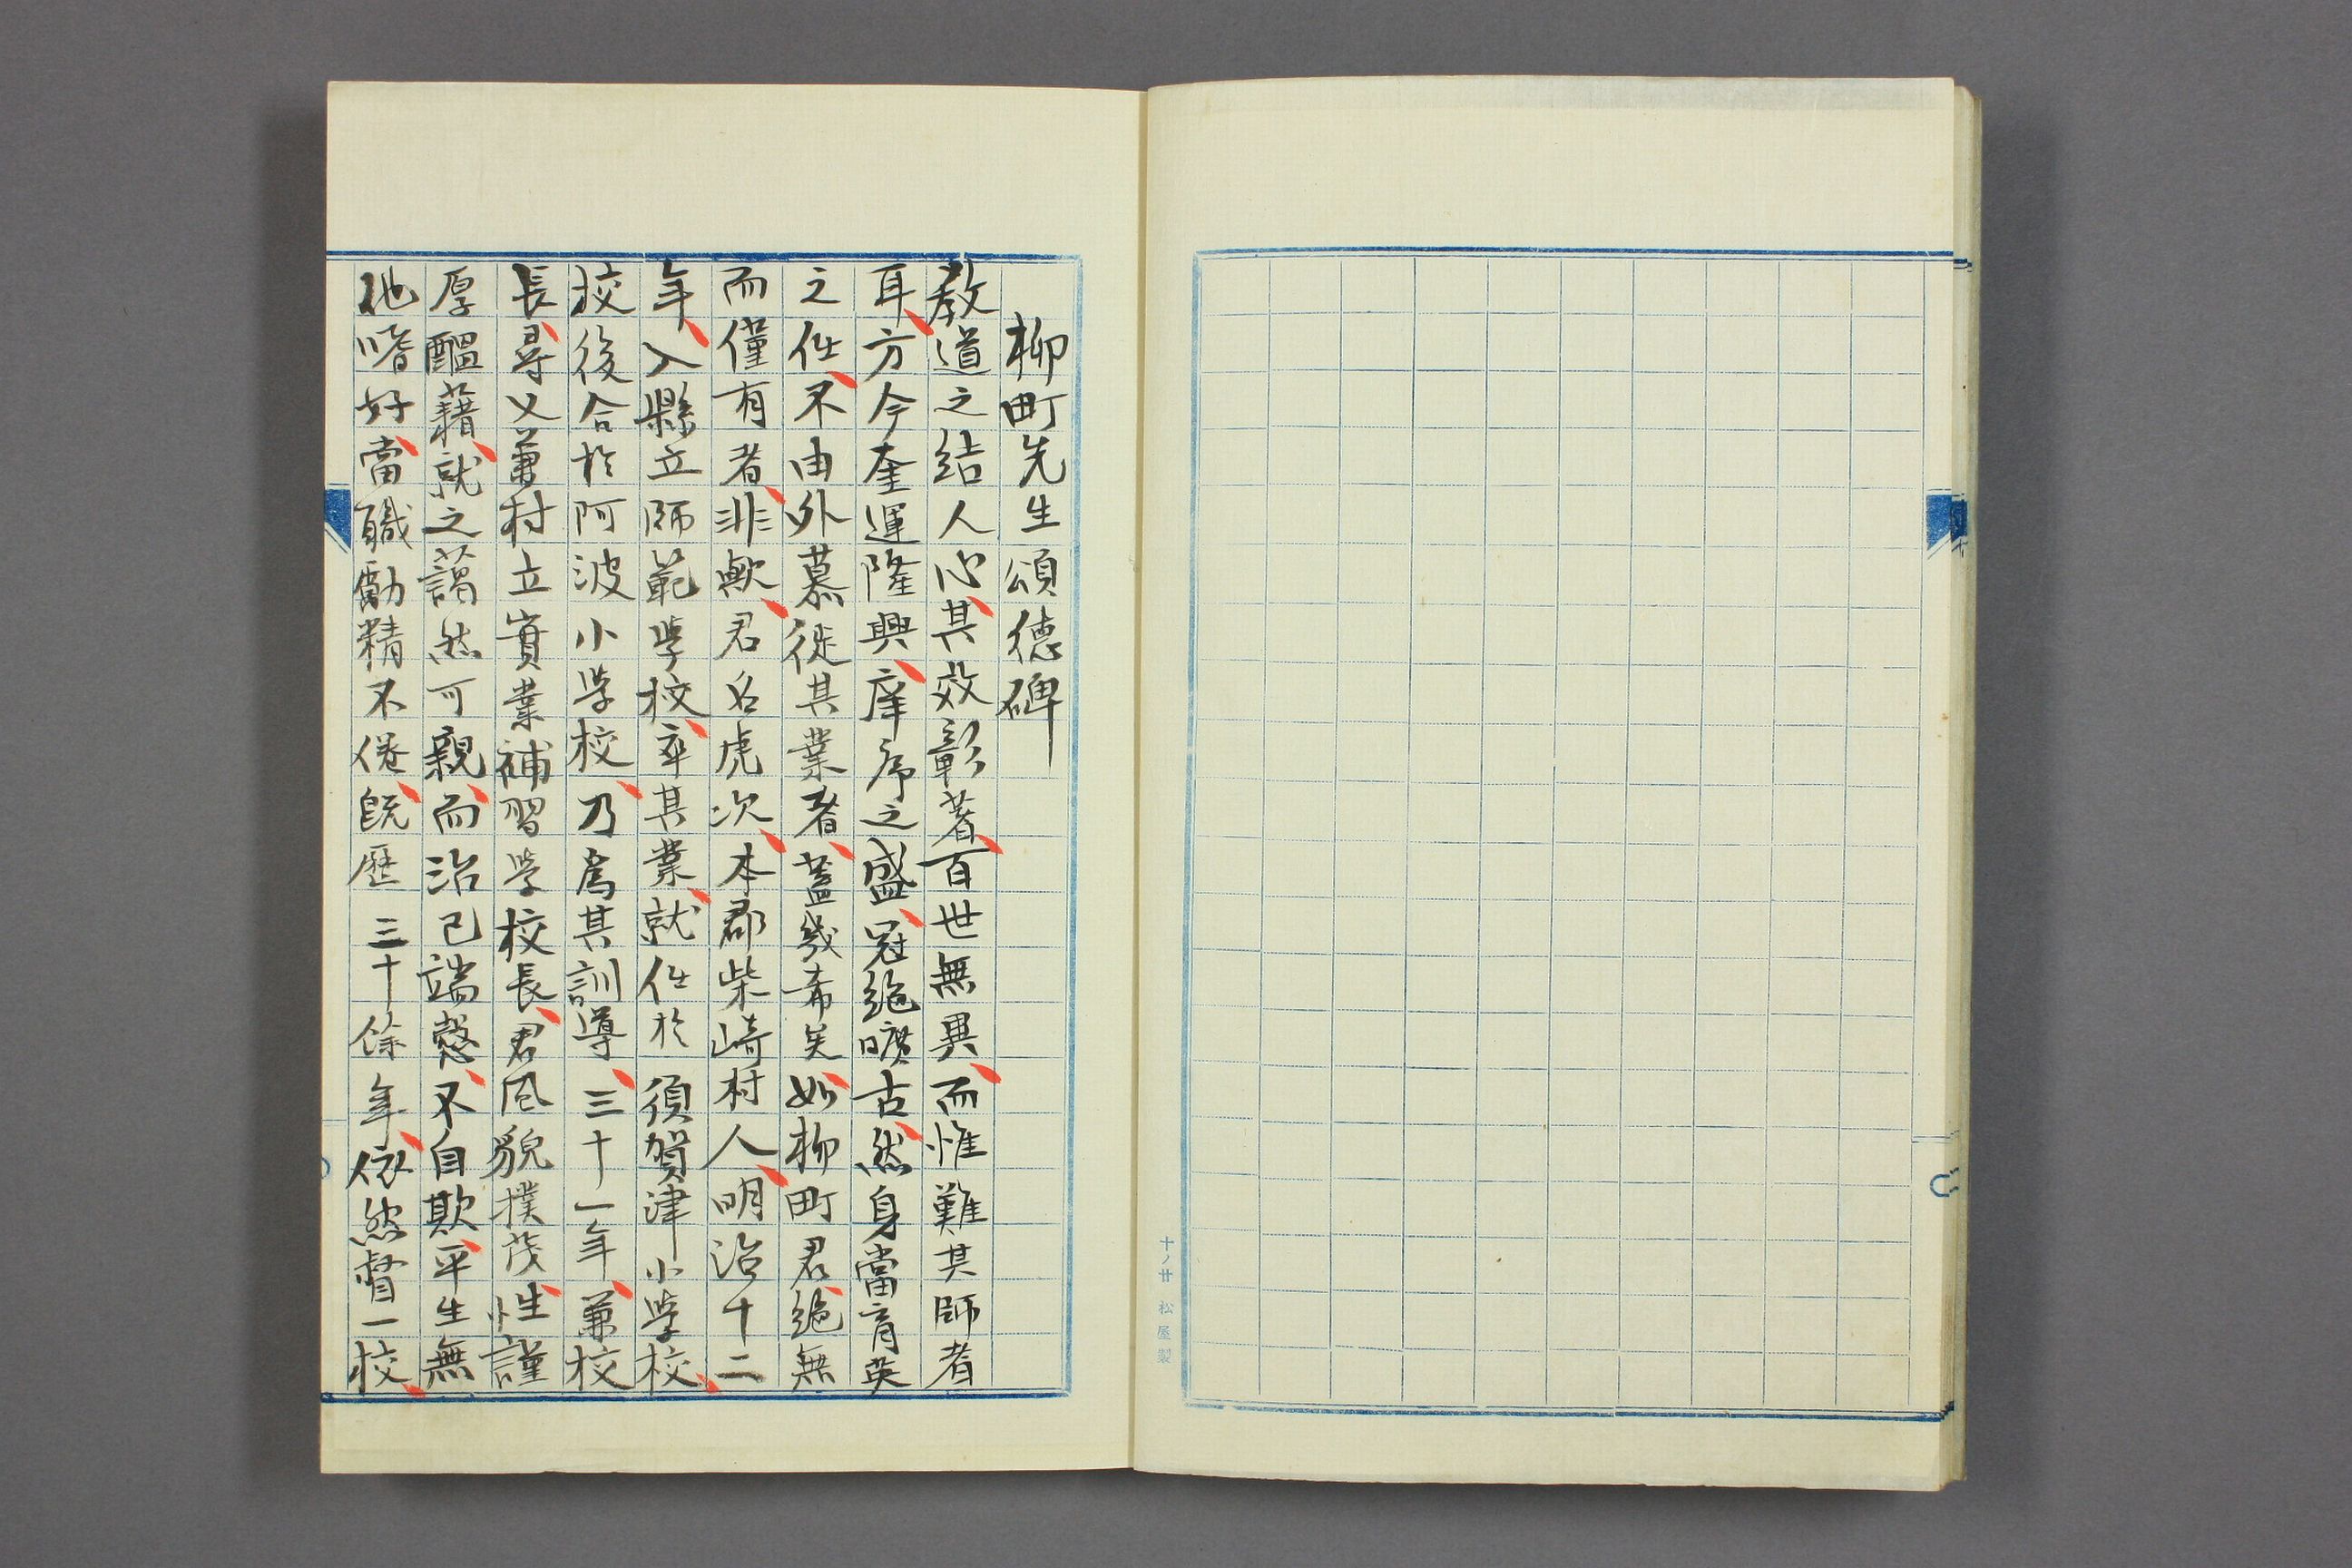 柳町先生頌德碑
教道之結人心、其效彰著、百世無異、而惟難其師者
耳、方今奎運隆興、庠序之盛、冠絶曠古、然身當育英
之任、不由外慕、徙其業者、蓋幾希矣、如柳町君、絶無
而僅有者、非歟、君名虎次、本郡柴崎村人、明治十二
年、入縣立師範学校、卒其業、就任於須賀津小学校、
校後合於阿波小学校、乃為其訓導、三十一年、兼校
長、尋又兼村立實業補習学校長、君風貌撲茂、性謹
厚醞藉、就之藹然可親、而治己端慤、不自欺、平生無
他嗜好、當職勵精不倦、既歷三十餘年、依然督一校、
十ノ廿 松屋製